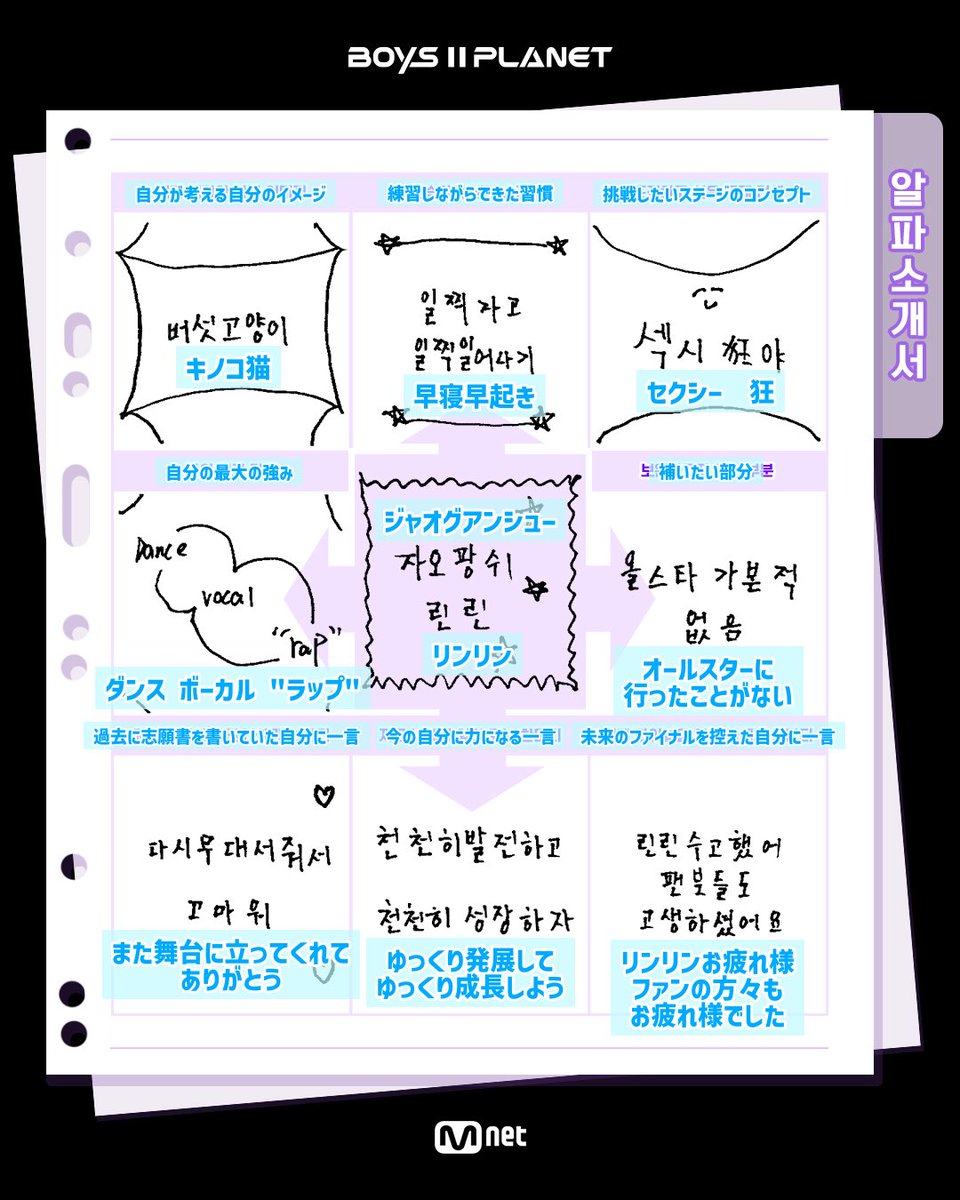 BOYS II PLANET
알파소개서
自分が考える自分のイメージ
練習しながらできた習慣
挑戦したいステージのコンセプト
버섯고양이
キノコ猫
일찍자고
일찍일어나기
早寝早起き
섹시 狂야
セクシー 狂
自分の最大の強み
補いたい部分
Dance
vocal
"rap"
ダンス ボーカル "ラップ"
ジャオグアンシュー
자오광쉬
린린
リンリン
올스타 가본적
없음
オールスターに
行ったことがない
過去に志願書を書いていた自分に一言
今の自分に力になる一言
未来のファイナルを控えた自分に一言
다시무대서줘서
고마워
また舞台に立ってくれて
ありがとう
천천히발전하고
천천히 성장하자
ゆっくり発展して
ゆっくり成長しよう
린린수고했어
팬분들도
고생하셨어요
リンリンお疲れ様
ファンの方々も
お疲れ様でした
Mnet